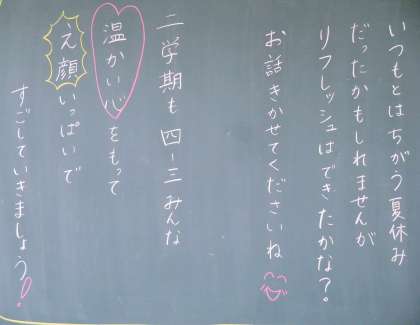 いつもとはちがう夏休み
だったかもしれませんが
リフレッシュはできたかな?
お話きかせてくださいね
二学期も四-三みんな
温かい心をもって
え顔いっぱいで
すごしていきましょう!